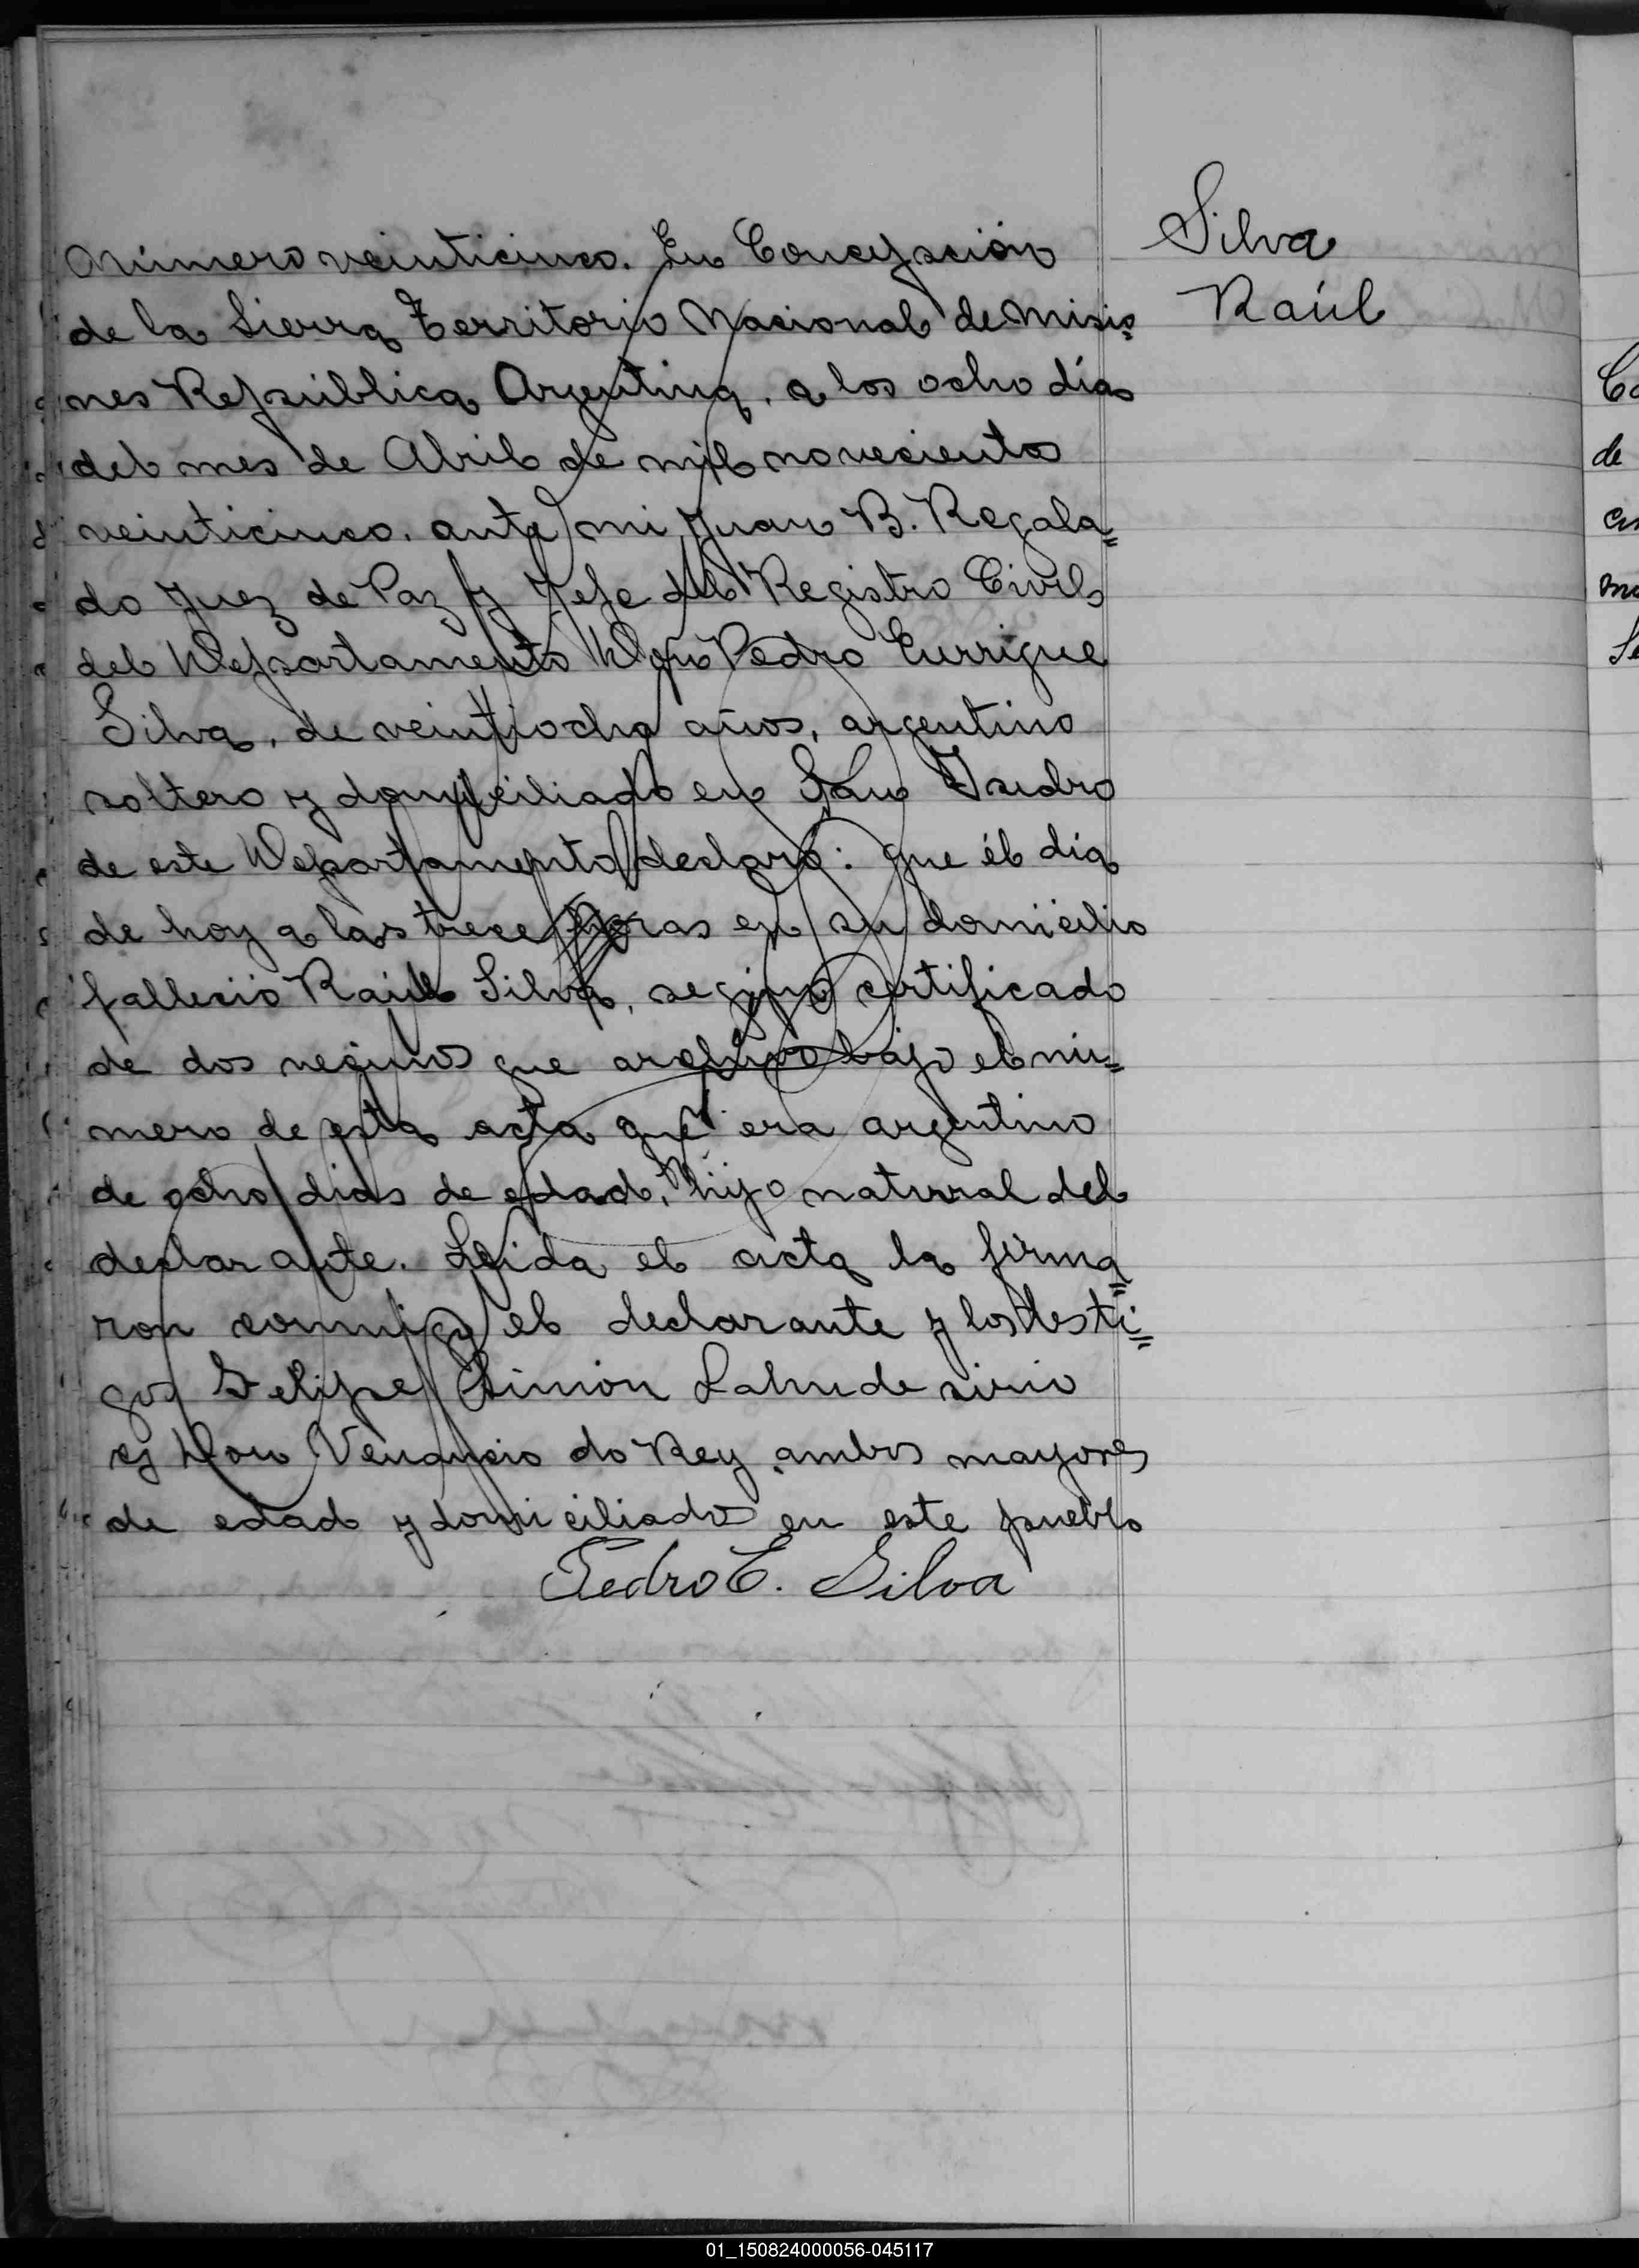 Silva
Raúl
Número veinticinco. En Concepción
de la Sierra Territorio Nacional de Misio=
nes República Argentina, a los ocho días
del mes de Abril de mil novecientos
veinticinco. ante mi, Juan B. Regala=
do Juez de Paz y Jefe del Registro Civil
del Departamento Don Pedro Enrrique
Silva, de veintiocho años, argentino
soltero y domiciliado en San Isidro
de este Departamento declaró: que él dia
de hoy a las trece horas en su domicilio
fallecio Raúl Silva, según certificado
de dos vecinos que archivo bajo el nú=
mero de esta acta que era argentino
de ocho dias de edad, hijo natural del
declarante. Leida el acta la firma=
ron conmigo el declarante y los testi=
gos Felipe Simón Lahude sirio
y Don Venancio do Rey ambos mayores
de edad y domiciliados en este pueblo
Pedro E. Silva
Co
de
mo
01_150824000056-045117